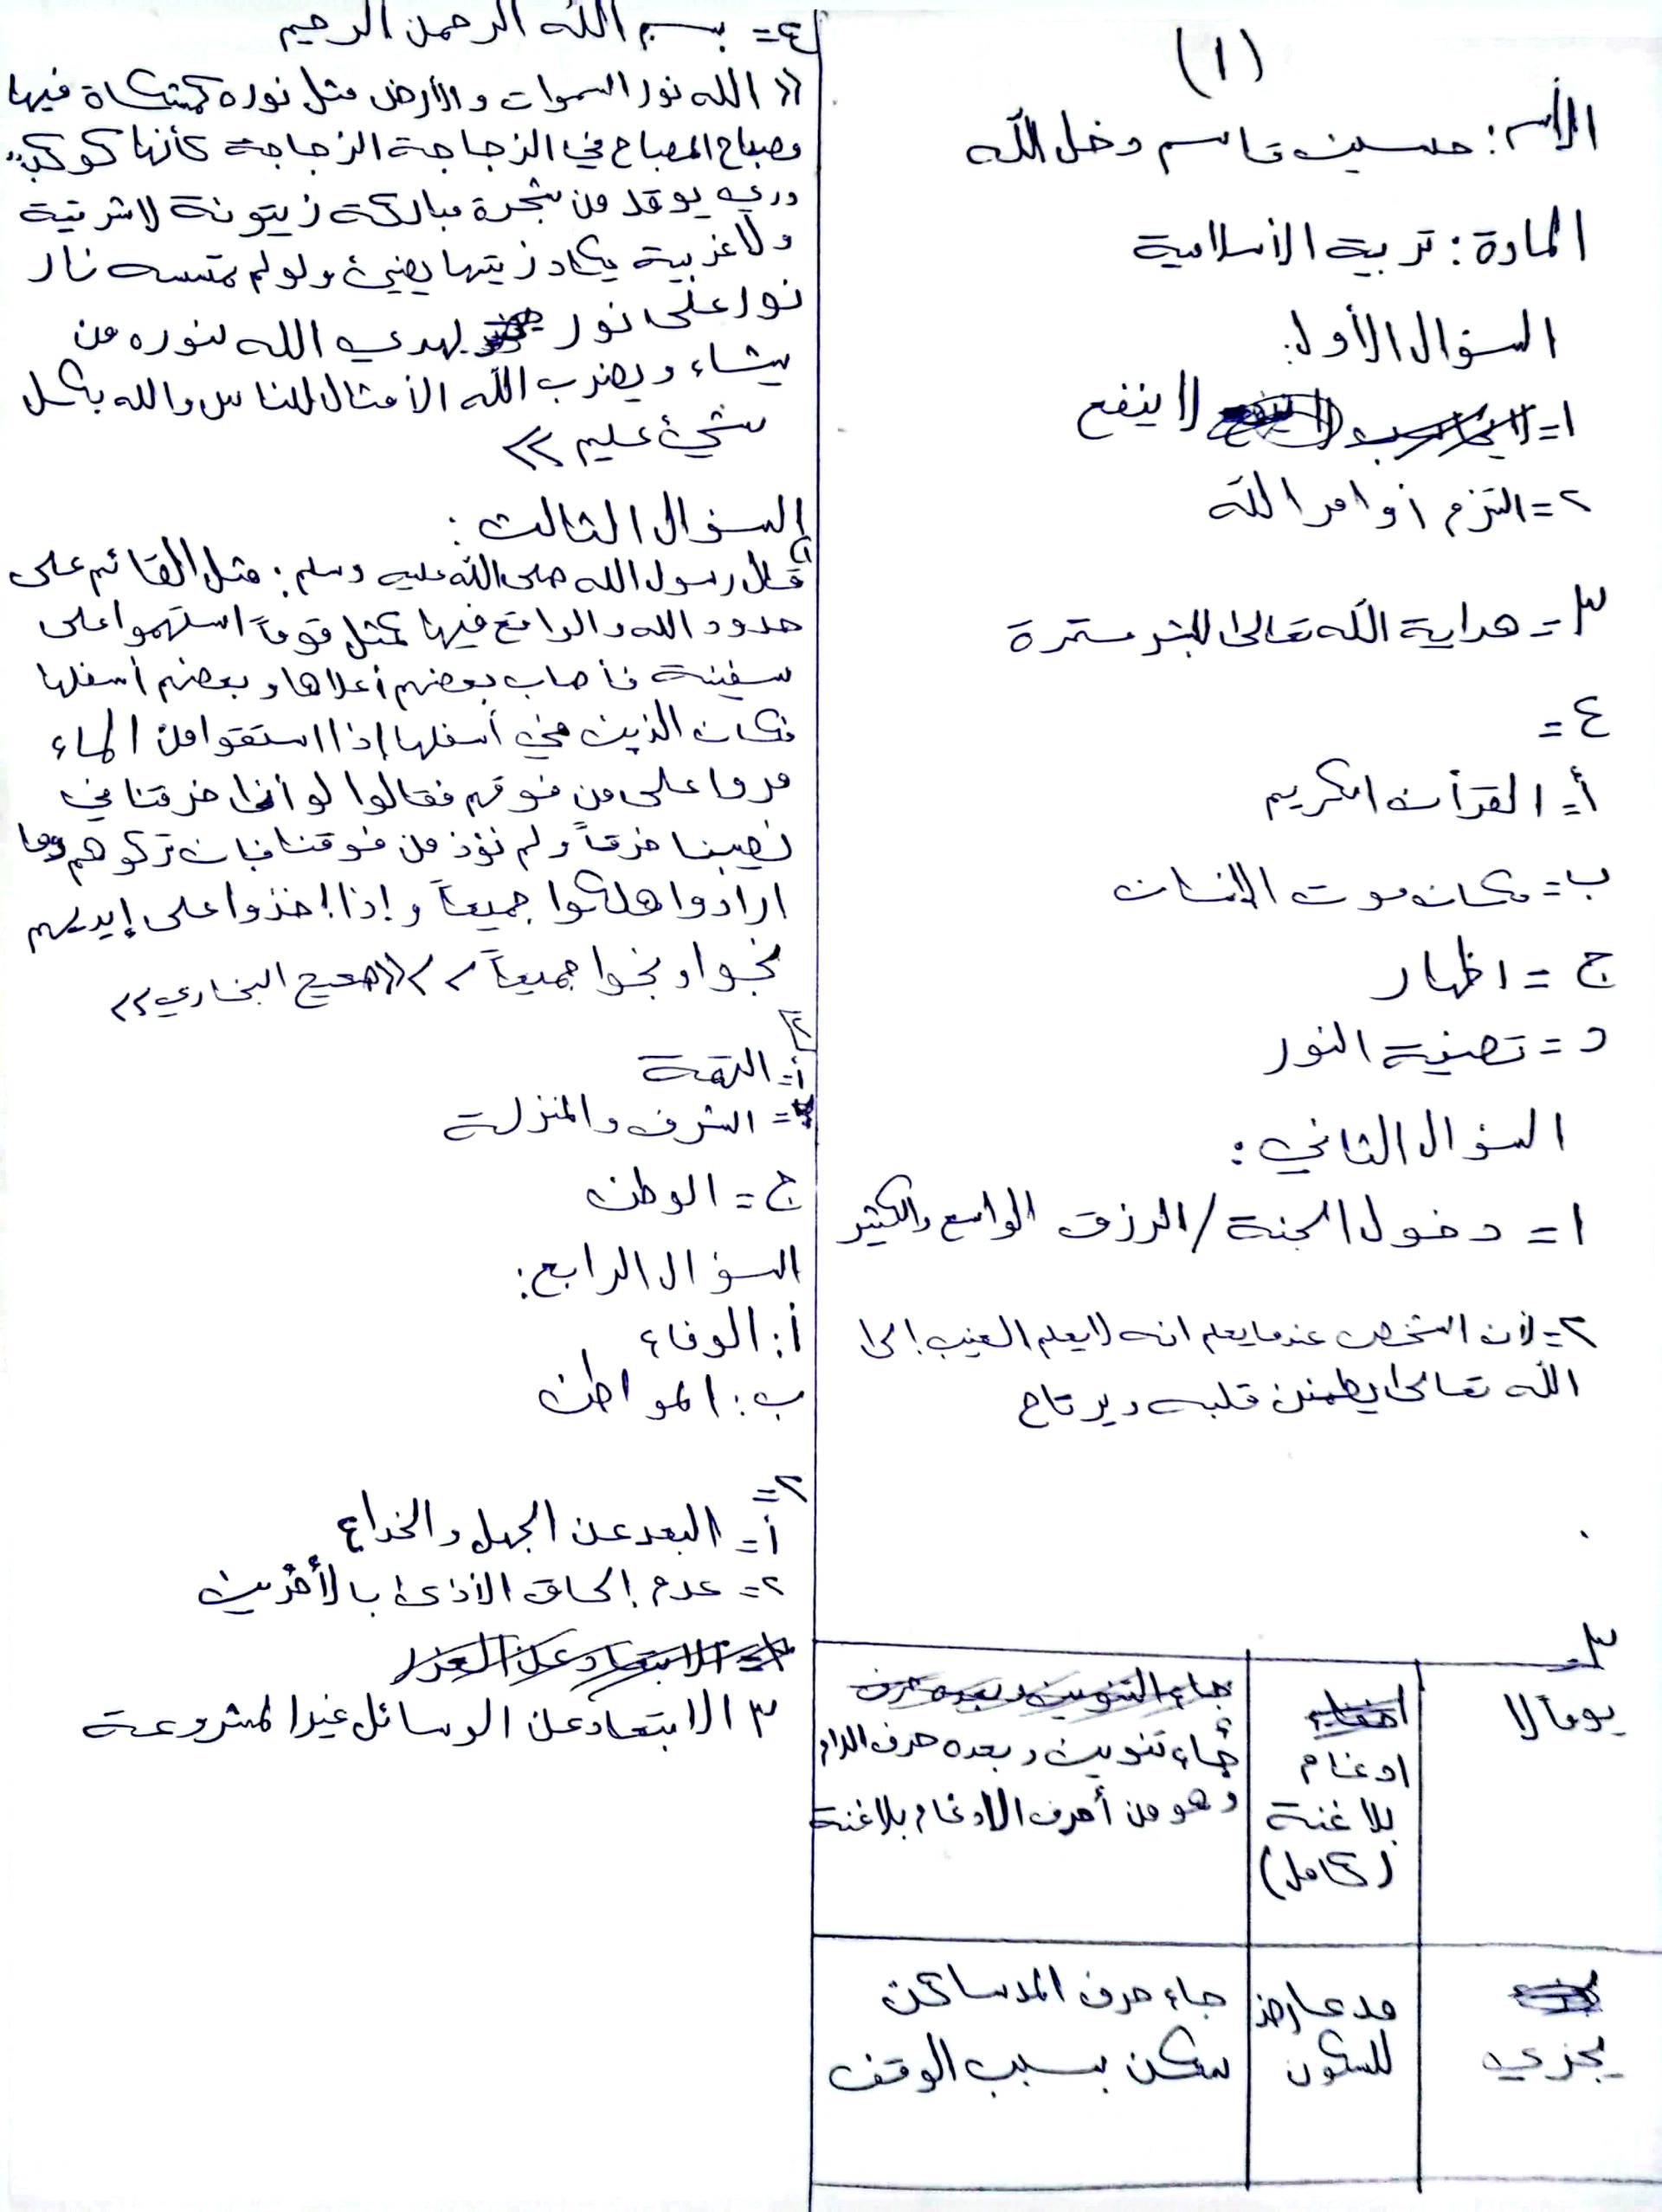 (١)
الأسم: حسين قاسم دخل الله
المادة: تربية الأسلامية
السؤال الأول:
١= لا ينفع
٢= التزم أوامر الله
٣= هداية الله تعالى للبشر مستمرة
٤=
أ= القرآن الكريم
ب= مكان موت الانسان
ج= اظهار
د= تصفية النور
السؤال الثاني:
١= دخول الجنة / الرزق الواسع والكثير
٢= لأن الشخص عندما يعلم انه لا يعلم الغيب إلى
الله تعالى يطمئن قلبه ويرتاح
٣=
يوماً لا
ادغام
بلا غنة
(كامل)
جاء تنوين وبعده حرف اللام
وهو من أحرف الادغام بلا غنة
يجزي
مد عارض
للسكون
جاء حرف المد ساكن
سكن بسبب الوقف
٤= بسم الله الرحمن الرحيم
<< الله نور السموات والأرض مثل نوره كمشكاة فيها
مصباح المصباح في الزجاجة الزجاجة كأنها كوكب
دري يوقد من شجرة مباركة زيتونة لا شرقية
ولا غربية يكاد زيتها يضيئ ولو لم تمسسه نار
نور على نور يهدي الله لنوره من
يشاء ويضرب الله الأمثال للناس والله بكل
شيئ عليم >>
السؤال الثالث:
١) قال رسول الله صلى الله عليه وسلم: مثل القائم على
حدود الله والواقع فيها كمثل قوماً استهموا على
سفينة فأصاب بعضهم أعلاها وبعضهم أسفلها
فكان الذين في أسفلها إذا استقوا من الماء
مروا على من فوقهم فقالوا لو أننا خرقنا في
نصيبنا خرقاً ولم نؤذ من فوقنا فإن تركوهم وما
ارادوا هلكوا جميعاً وإذا اخذوا على إيديهم
نجوا ونجوا جميعاً >> <<صحيح البخاري>>
٢)
أ= التهمة
= الشرف والمنزلة
ج= الوطن
السؤال الرابع:
أ: الوفاء
ب: المواطن
٢=
أ= البعد عن الجهل والخداع
٢= عدم إلحاق الأذى بالأخرين
٣ الابتعاد عن الوسائل غير المشروعة